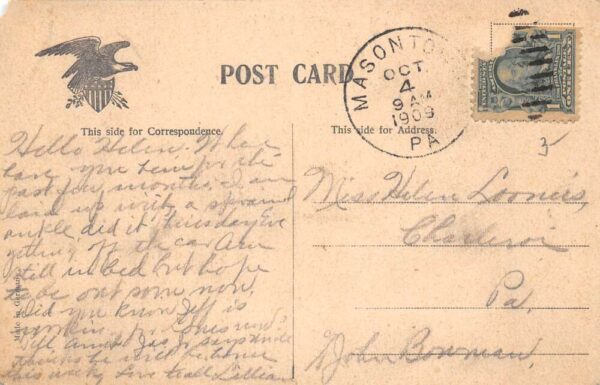 POST CARD.
MASONTO
OCT
4
9 AM
1909
PA
This side for Correspondence.
This side for Address.
Hello Helen. Where
have you been for the
past few months. I am
laid up with a sprained
ankle did it Tuesday Eve
getting off the car. Am
still in bed but hope
to be out some now.
Did you know Jeff is
working for Jones now?
Will
thinks he will be home
this week. Love to all Lillian
Miss Helen Loomis,
Charleroi
Pa.
% John Bowman,
3
Made in Germany